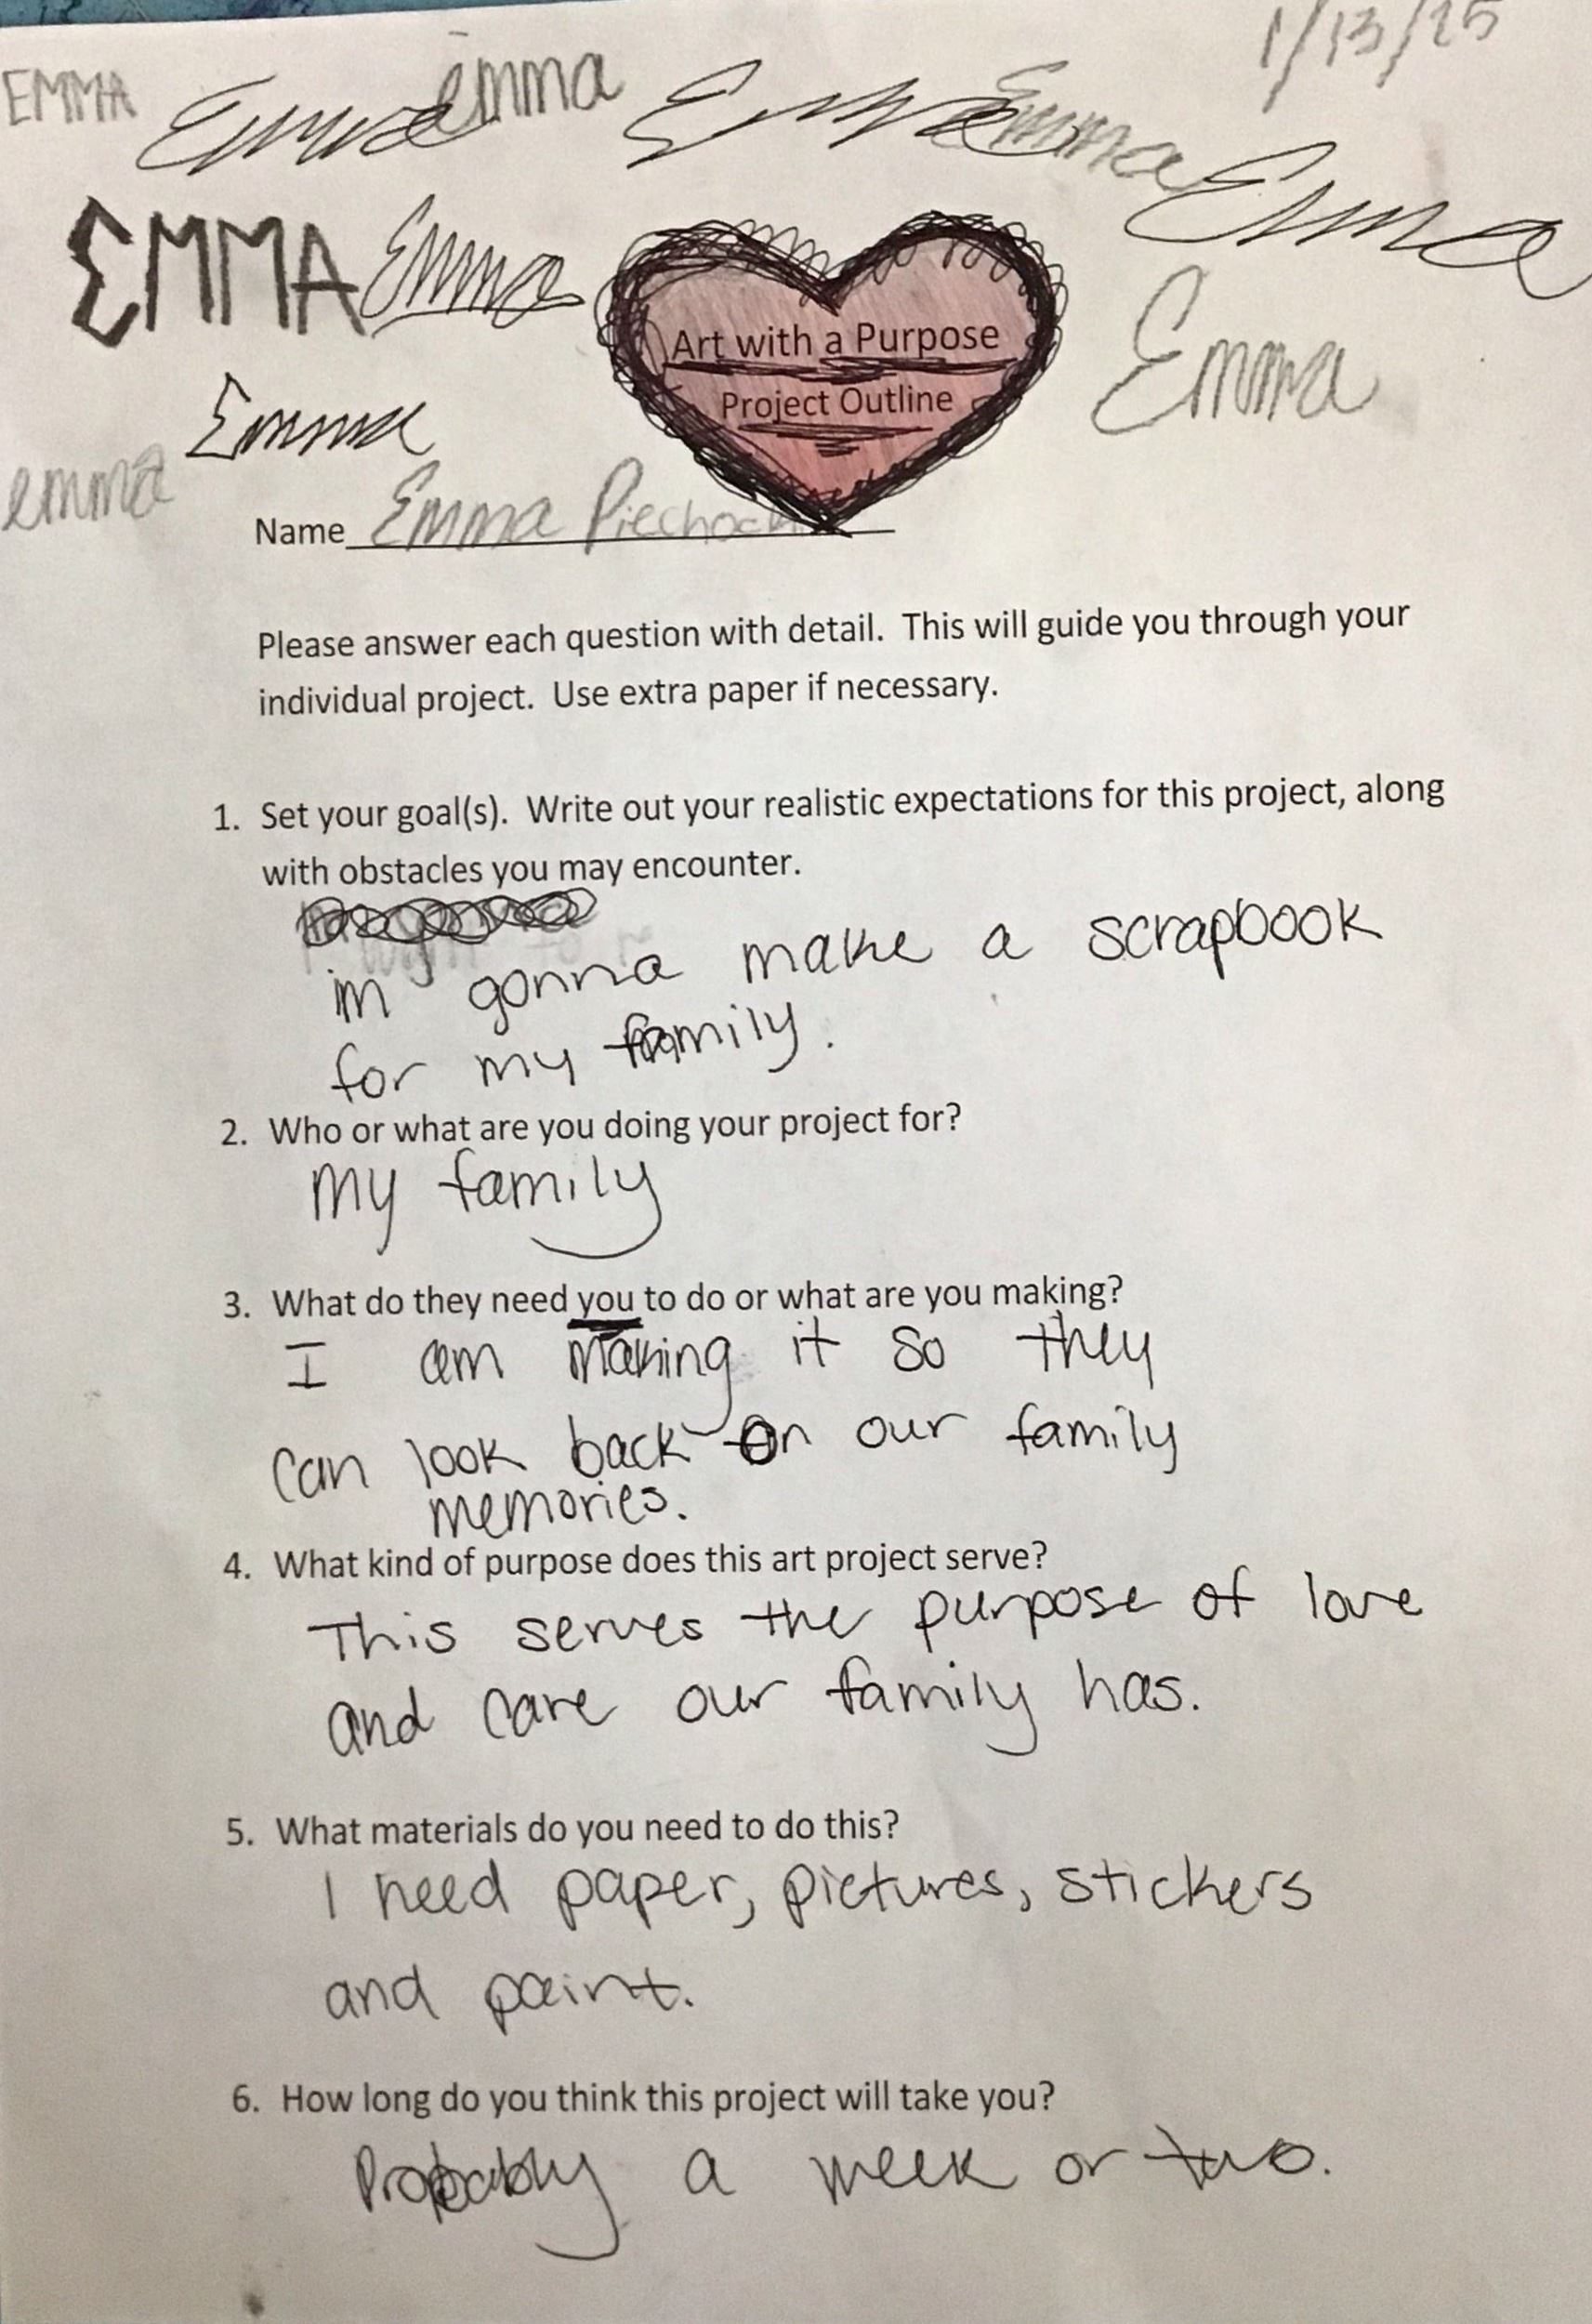 1/13/25
EMMA Emma emma Emma Emma Emma
EMMA Emma
Emma
Art with a Purpose
Project Outline
Emma
emma
Name Emma Piechocki
Please answer each question with detail. This will guide you through your
individual project. Use extra paper if necessary.
1. Set your goal(s). Write out your realistic expectations for this project, along
with obstacles you may encounter.
im gonna make a scrapbook
for my family.
2. Who or what are you doing your project for?
my family
3. What do they need you to do or what are you making?
I am making it so they
can look back on our family
memories.
4. What kind of purpose does this art project serve?
This serves the purpose of love
and care our family has.
5. What materials do you need to do this?
I need paper, pictures, stickers
and paint.
6. How long do you think this project will take you?
Probably a week or two.